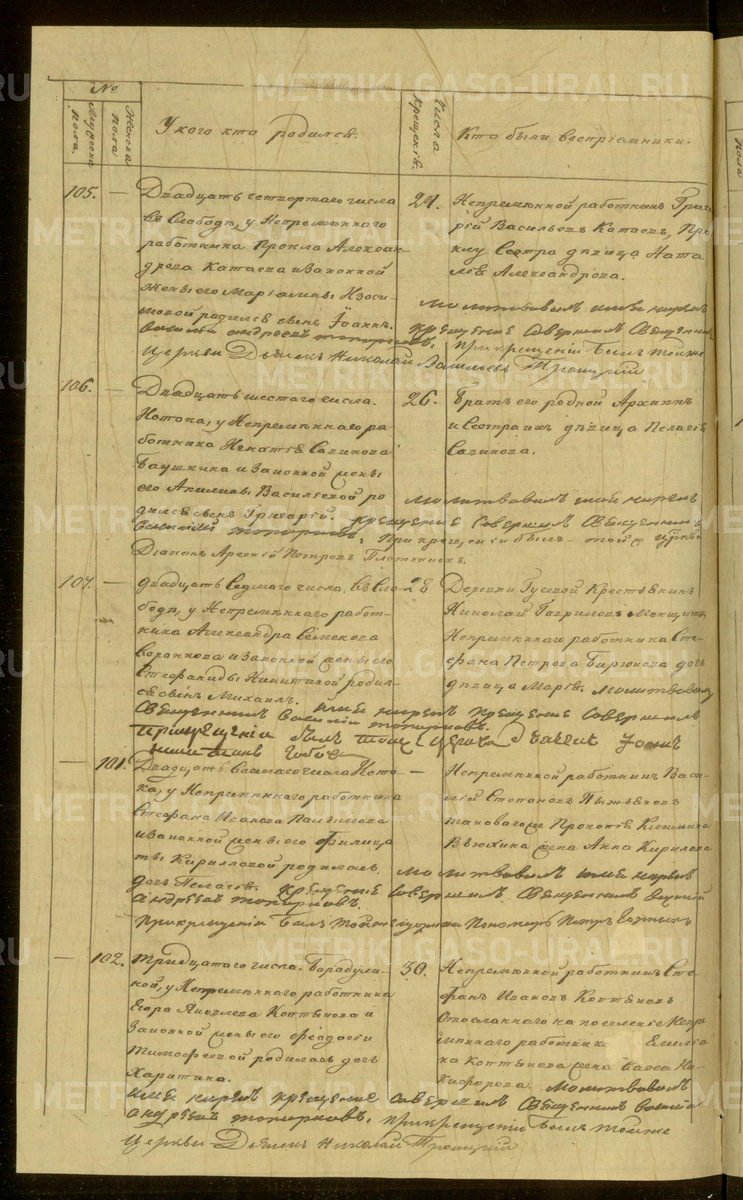 №
Мужеска пола.
Женска пола.
У кого кто родился.
Числа крещенія.
Кто были воспріемники.
105. —
Двадцать четвертаго числа
въ Слободѣ, у Непремѣннаго
работника Прокла Алексан
дрова Катаева и Законной
жены его Маріамны Изоси
мовой родился сынъ Іоаннъ.
24.
Непремѣнной работникъ Григо
рій Васильевъ Катаевъ, Про
клу Сестра дѣвица Ната
лія Александрова.
Молитвовалъ имя нарекъ
крещеніе совершалъ Священникъ
Василій Андреевъ Топорковъ, при крещеніи былъ тойже
Церкви Дьячекъ Николай Васильевъ Троицкій
106. —
Двадцать шестаго числа.
Истока, у Непремѣннаго ра
ботника Игнатія Савинова
Баушкина и Законной жены
его Акилины Васильевой ро
дился сынъ Григорій.
26.
Братъ его родной Архиппъ
и Сестра ихъ дѣвица Пелагія
Савинова.
Молитвовалъ имя нарекъ
крещеніе совершалъ Священникъ
Василій Топорковъ, при крещеніи былъ той же церкви
Діаконъ Арсеній Петровъ Плотниковъ.
107. —
Двадцать Седмаго числа, въ Сло
бодѣ, у Непремѣннаго работ-
ника Александра Семенова
Воронкова и Законной жены его
Стефаниды Никитиной родил-
ся сынъ Михаилъ.
28
Деревни Гусевой Крестьянинъ
Николай Гавриловъ
Непремѣннаго работника Сте-
фана Петрова Бирюкова дочь
дѣвица Марія. Молитвовалъ
имя нарекъ крещеніе совершалъ
Священникъ Василій Топорковъ.
при крещеніи былъ тойже церкви Дьячекъ Іоаннъ
— 101.
Двадцать Восьмаго числа Исто
ка, у Непремѣннаго работника
Стефана Иванова
и Законной жены его Филица
ты Кирилловой родилась
дочь Пелагія.
—
Непремѣнной работникъ Васи-
лій Степановъ Пыжьяновъ
тановаго же Прокопія
Вяткина жена Анна Кирилова
Молитвовалъ имя нарекъ
крещеніе совершалъ Священникъ Василій
Андреевъ Топорковъ.
при крещеніи былъ тойже церкви Пономарь Петръ
— 102.
Тридцатаго числа.
кой, у Непремѣннаго работника
Егора Яковлева Коптякова и
Законной жены его Ѳеодосіи
Тимоѳеевой родилась дочь
Харитина.
30.
Непремѣнной работникъ Сте-
фанъ Ивановъ Коптяковъ
Отосланнаго на поселеніе Непре
мѣннаго работника Емелья
на Коптякова жена Васса Ни-
кифорова. Молитвовалъ
имя нарекъ крещеніе совершалъ Священникъ Василій
Андреевъ Топорковъ, при крещеніи былъ тойже
Церкви Дьячекъ Николай Троицкій
METRIKI.GASO-URAL.RU